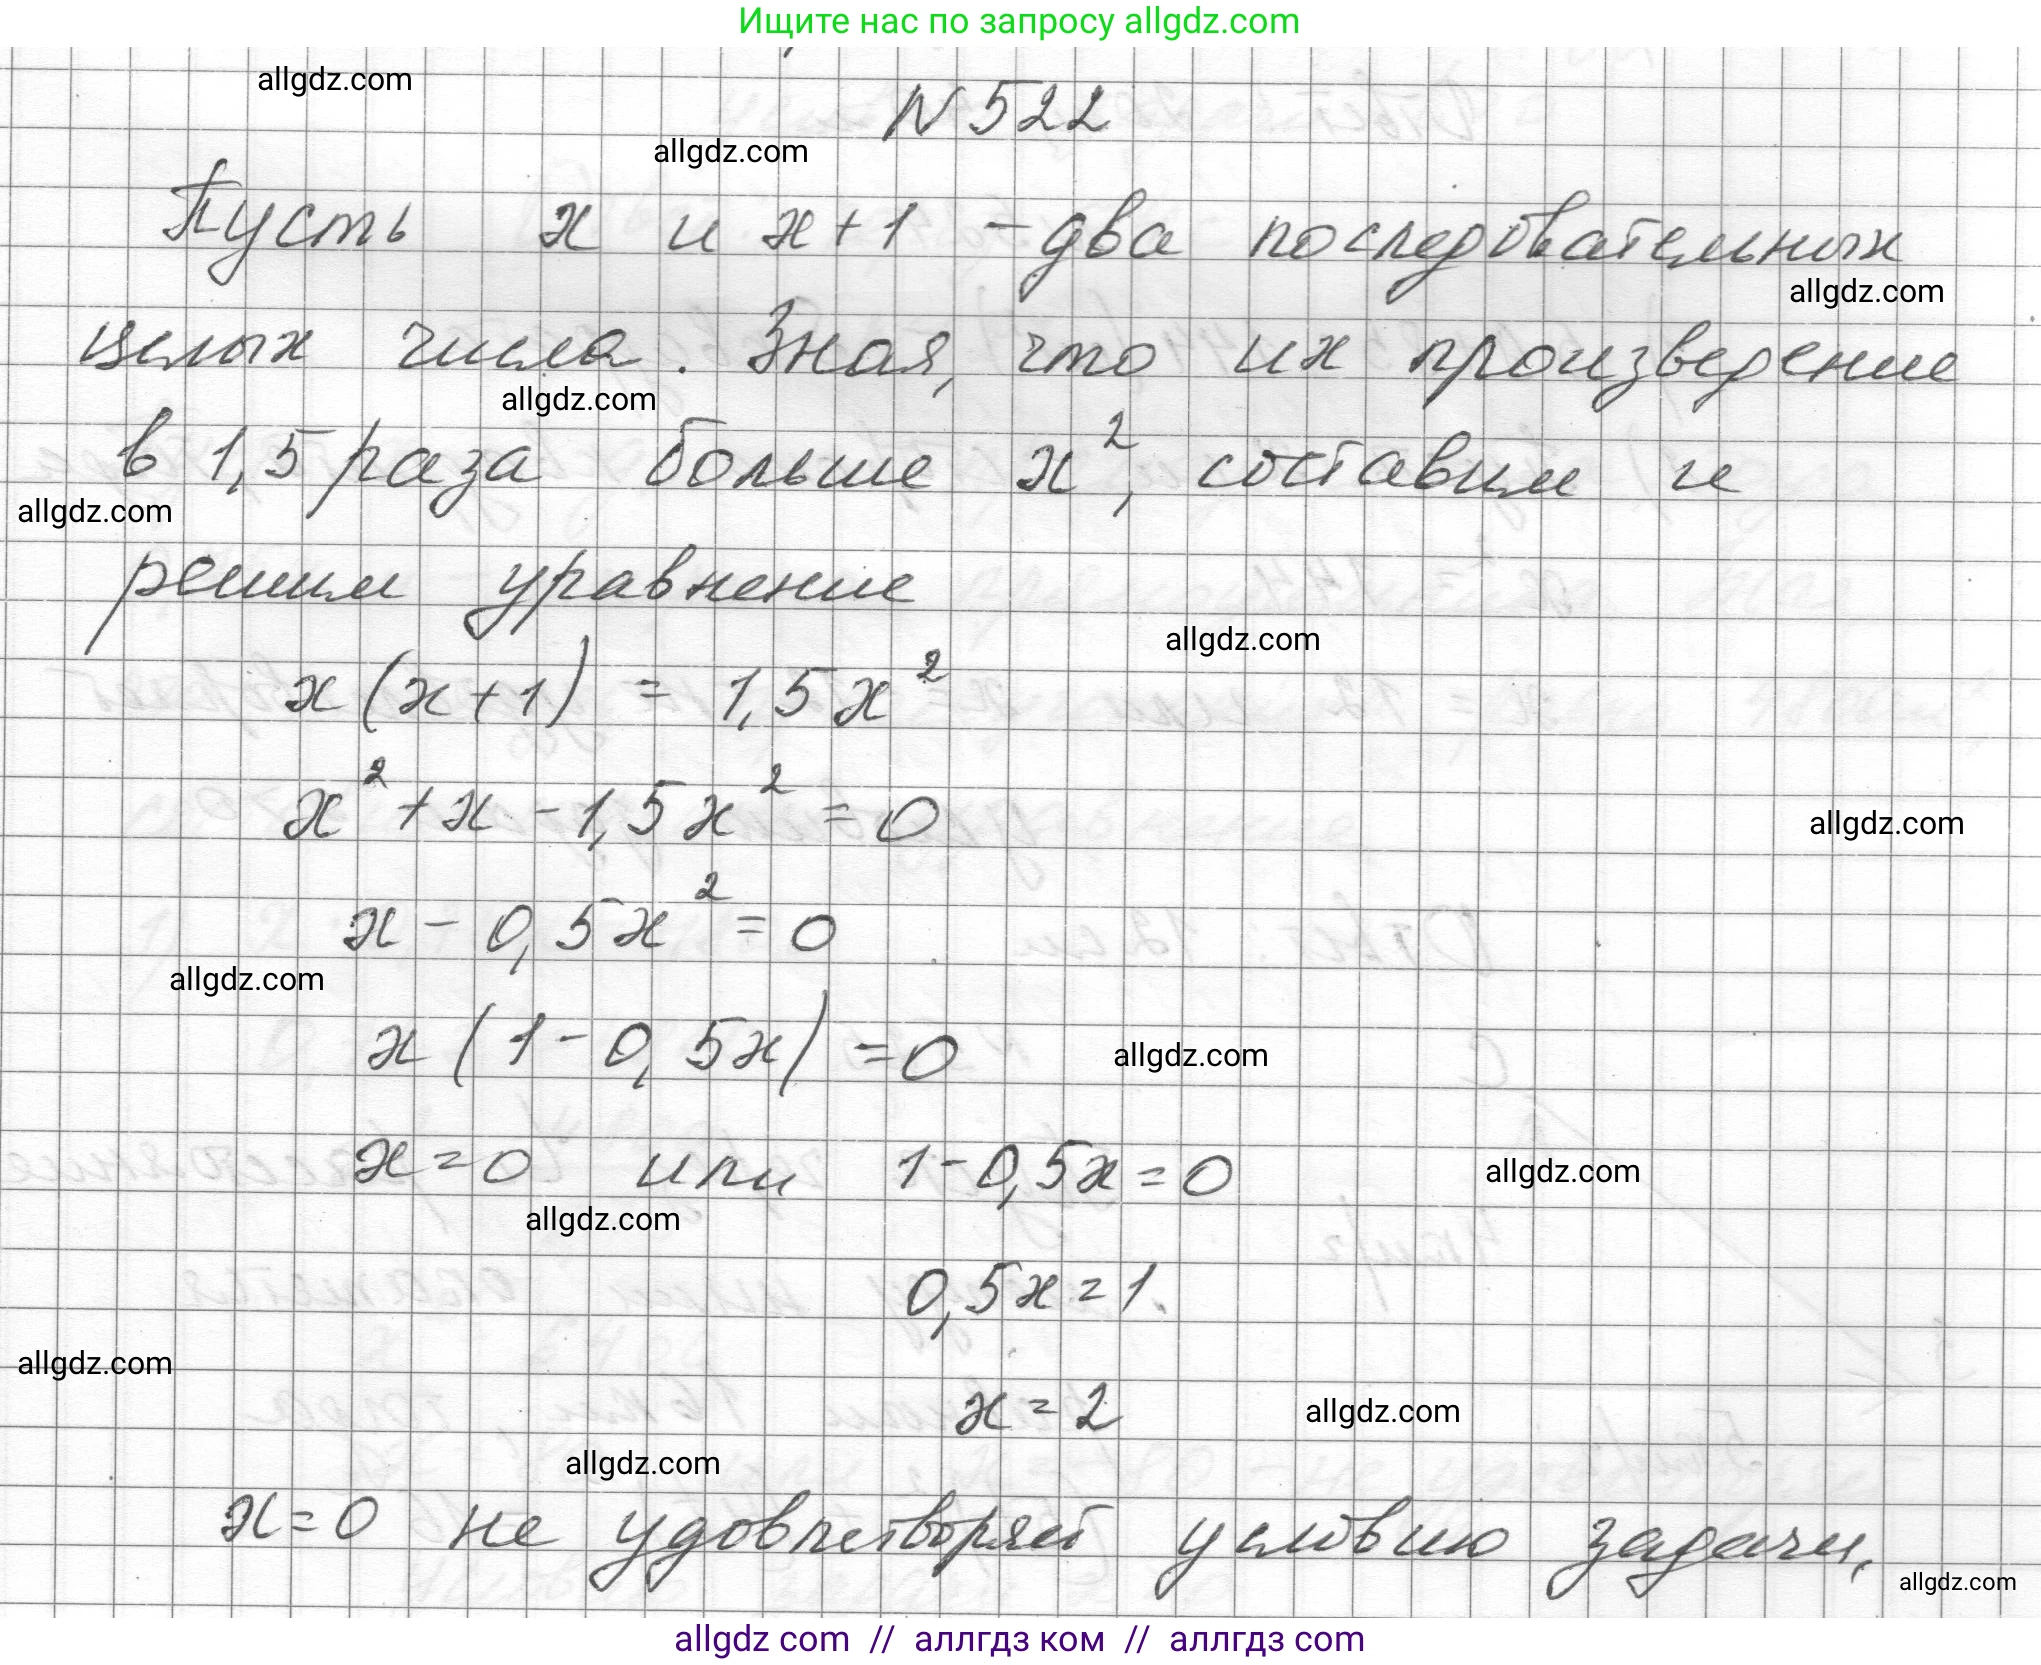 Ищите нас по запросу allgdz.com
allgdz.com
N 522
allgdz.com
Пусть x и x+1 - два последовательных
allgdz.com
целых числа. Зная, что их произведение
allgdz.com
в 1,5 раза больше x², составим и
allgdz.com
решим уравнение
allgdz.com
x(x+1) = 1,5x²
x² + x - 1,5x² = 0
allgdz.com
x - 0,5x² = 0
allgdz.com
x(1 - 0,5x) = 0
allgdz.com
x = 0 или 1 - 0,5x = 0
allgdz.com
allgdz.com
0,5x = 1
allgdz.com
x = 2
allgdz.com
allgdz.com
x = 0 не удовлетворяет условию задачи,
allgdz.com
allgdz com // аллгдз ком // аллгдз com